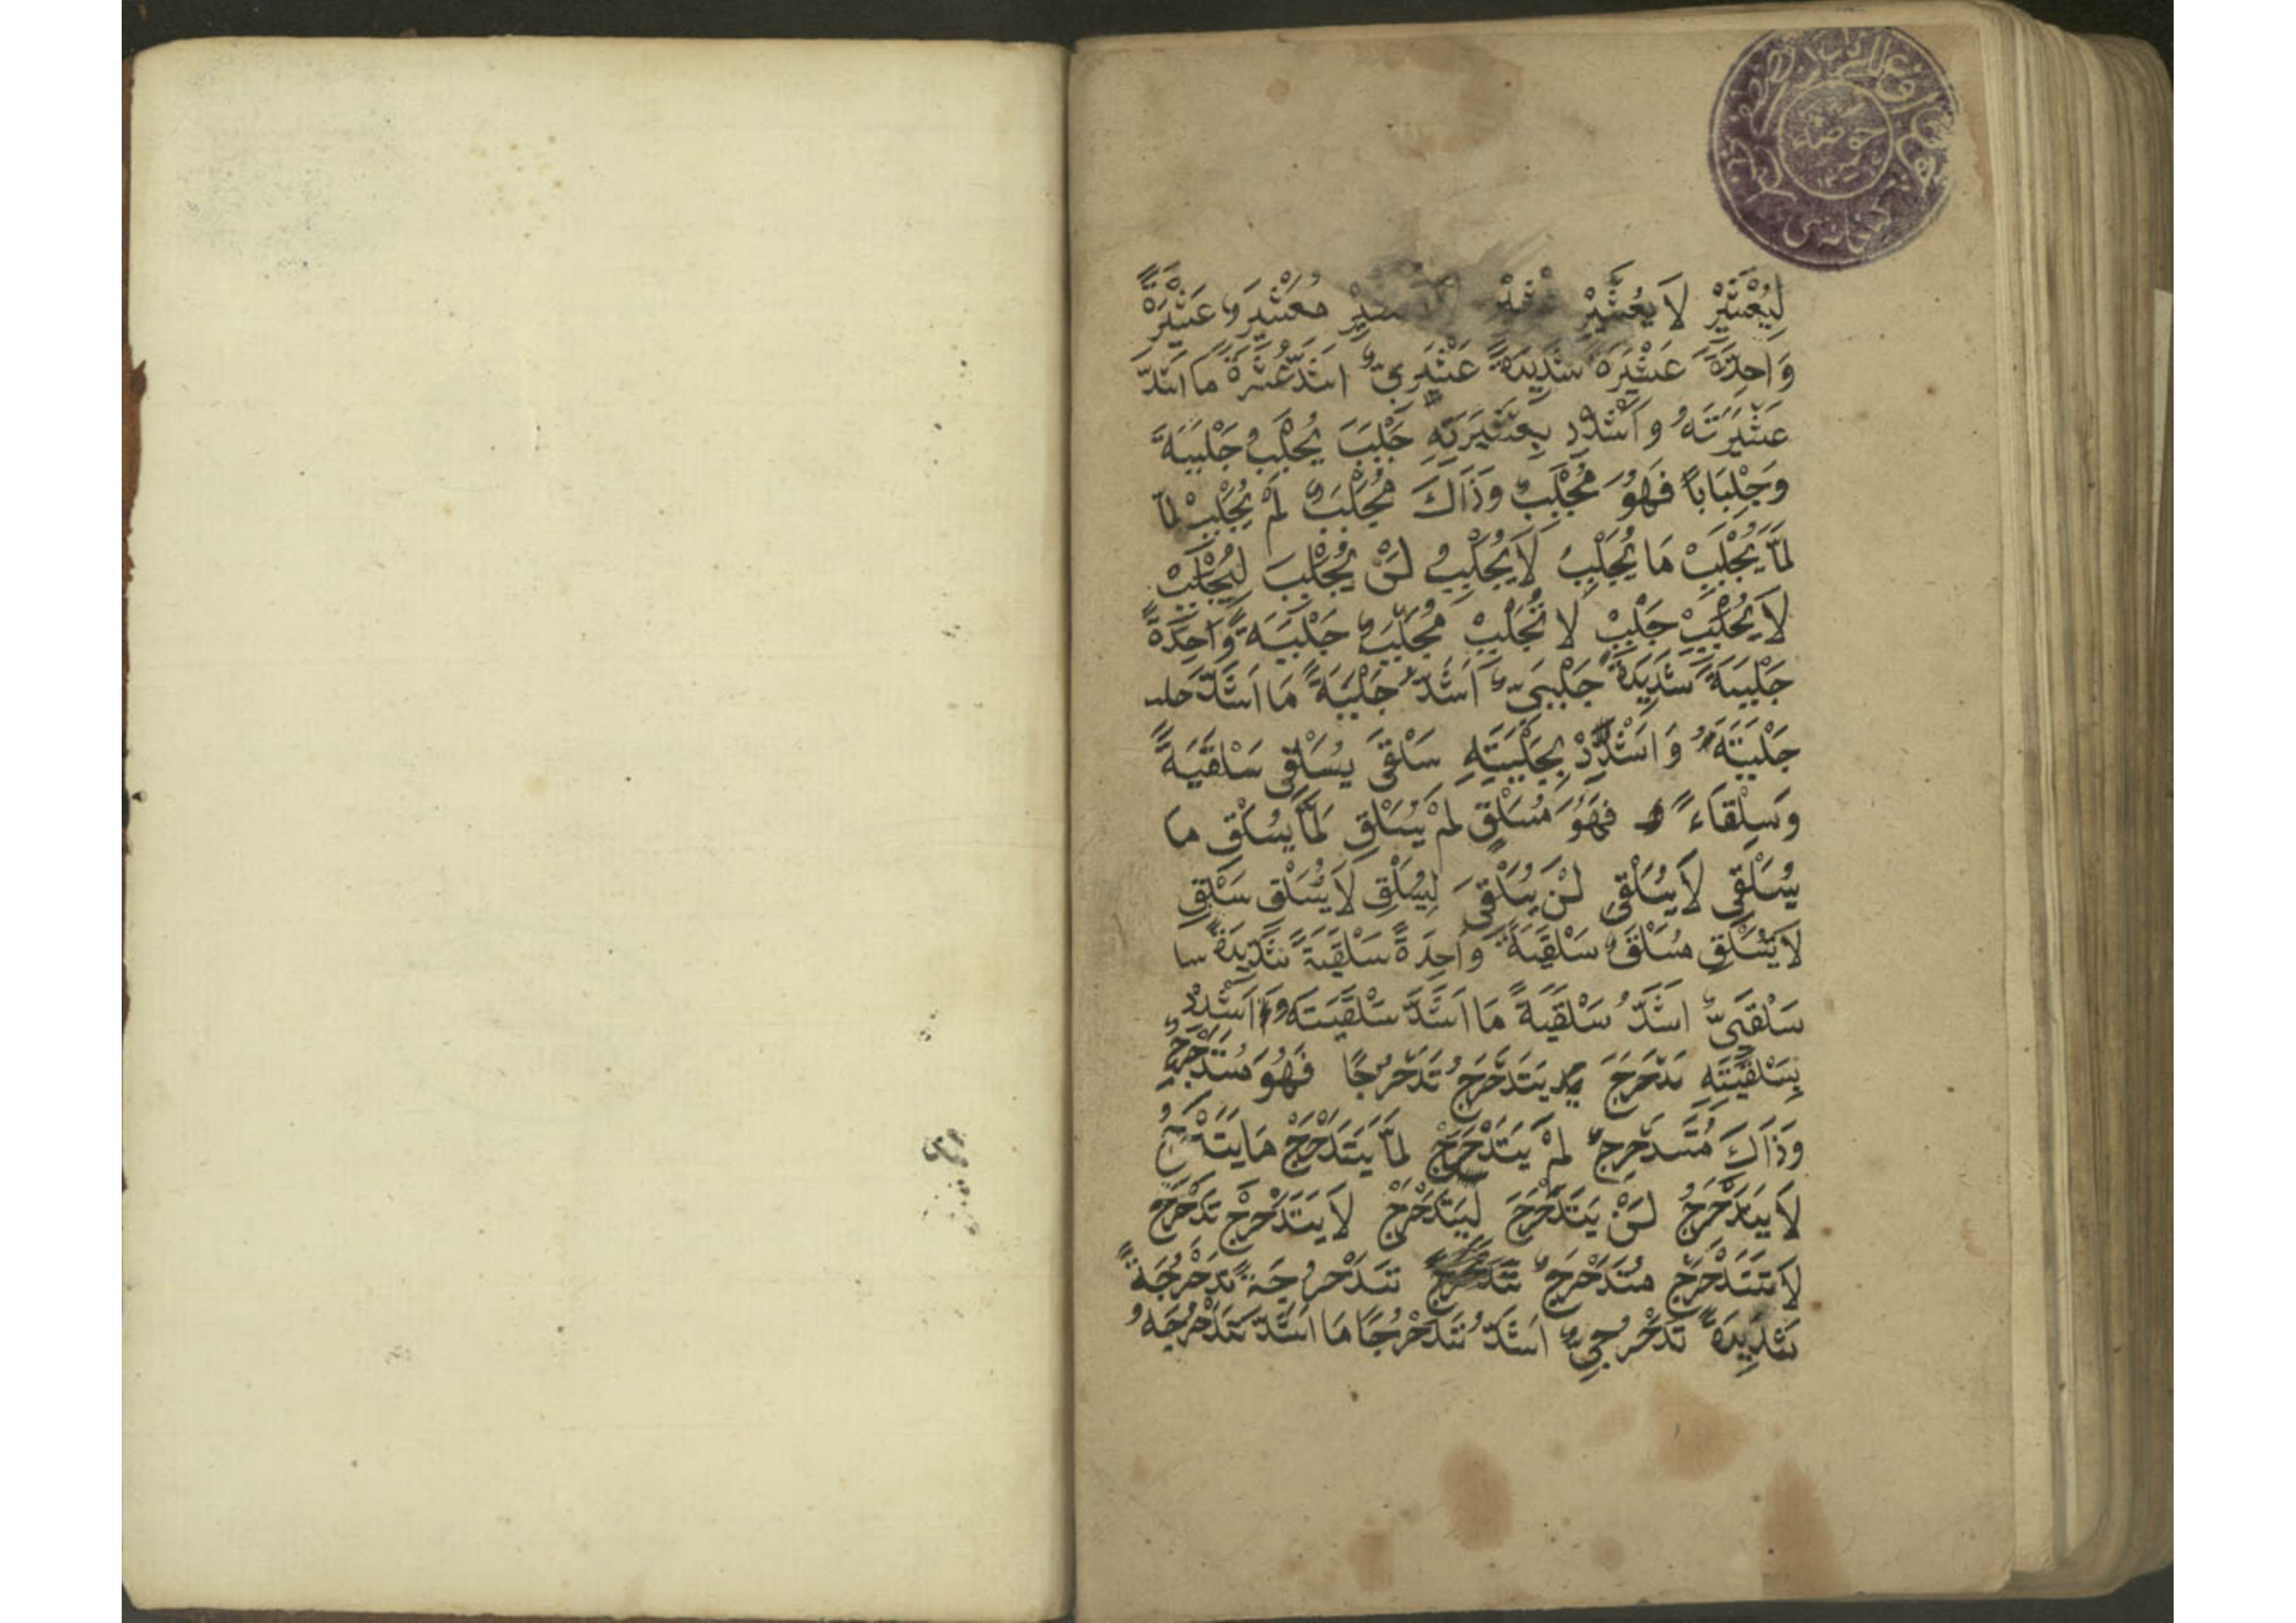 لِيُعَثْيِرْ لَا يُعَثْيِرْ مُعَثْيَرٌ عَثْيَرَةً
وَاحِدَةً عَثْيَرَةً شَدِيدَةً عَثْيَرِيٌّ اَشَدُّ عَثْيَرَةً مَا اَشَدَّ
عَثْيَرَتَهُ وَاَشْدِدْ بِعَثْيَرَتِهِ جَلْبَبَ يُجَلْبِبُ جَلْبَبَةً
وَجِلْبَابًا فَهُوَ مُجَلْبِبٌ وَذَاكَ مُجَلْبَبٌ لَمْ يُجَلْبِبْ لَمَّا
لَمَّا يُجَلْبِبْ مَا يُجَلْبِبُ لَا يُجَلْبِبُ لَنْ يُجَلْبِبَ لِيُجَلْبِبْ
لَا يُجَلْبِبْ جَلْبِبْ لَا تُجَلْبِبْ مُجَلْبَبٌ جَلْبَبَةً وَاحِدَةً
جَلْبَبَةً شَدِيدَةً جَلْبَبِيٌّ اَشَدُّ جَلْبَبَةً مَا اَشَدَّ
جَلْبَبَتَهُ وَاَشْدِدْ بِجَلْبَبَتِهِ سَلْقَى يُسَلْقِى سَلْقَيَةً
وَسِلْقَاءً فَهُوَ مُسَلْقٍ لَمْ يُسَلْقِ لَمَّا يُسَلْقِ مَا
يُسَلْقِى لَا يُسَلْقِى لَنْ يُسَلْقِىَ لِيُسَلْقِ لَا يُسَلْقِ سَلْقِ
لَا تُسَلْقِ مُسَلْقًى سَلْقَيَةً وَاحِدَةً سَلْقَيَةً شَدِيدَةً سا
سَلْقَيِىٌّ اَشَدُّ سَلْقَيَةً مَا اَشَدَّ سَلْقَيَتَهُ وَاَشْدِدْ
بِسَلْقَيَتِهِ تَدَحْرَجَ يَتَدَحْرَجُ تَدَحْرُجًا فَهُوَ مُتَدَحْرِجٌ
وَذَاكَ مُتَدَحْرَجٌ لَمْ يَتَدَحْرَجْ لَمَّا يَتَدَحْرَجْ مَا
لَا يَتَدَحْرَجُ لَنْ يَتَدَحْرَجَ لِيَتَدَحْرَجْ لَا يَتَدَحْرَجْ تَدَحْرَجْ
لَا تَتَدَحْرَجْ مُتَدَحْرَجٌ تَدَحْرُجَةً تَدَحْرُجَةً
شَدِيدَةً تَدَحْرُجِىٌّ اَشَدُّ تَدَحْرُجًا مَا اَشَدَّ تَدَحْرُجَهُ